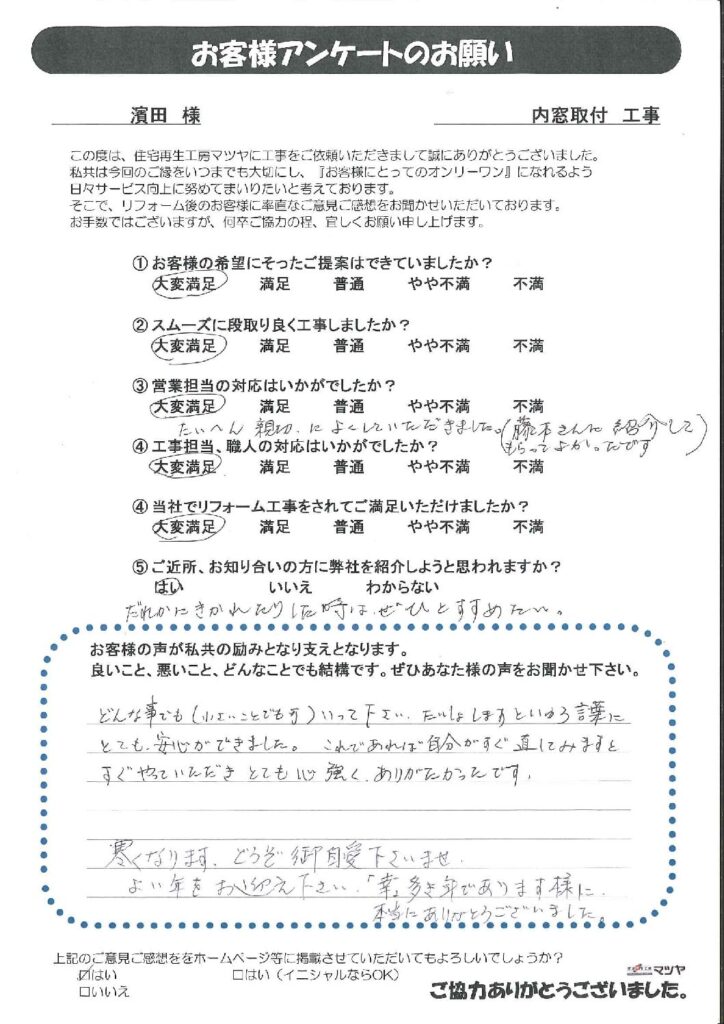 お客様アンケートのお願い
濱田 様 内窓取付 工事
この度は、住宅再生工房マツヤに工事をご依頼いただきまして誠にありがとうございました。
私共は今回のご縁をいつまでも大切にし、『お客様にとってのオンリーワン』になれるよう
日々サービス向上に努めてまいりたいと考えております。
そこで、リフォーム後のお客様に率直なご意見ご感想をお聞かせいただいております。
お手数ではございますが、何卒ご協力の程、宜しくお願い申し上げます。
① お客様の希望にそったご提案はできていましたか？
大変満足 満足 普通 やや不満 不満
② スムーズに段取り良く工事しましたか？
大変満足 満足 普通 やや不満 不満
③ 営業担当の対応はいかがでしたか？
大変満足 満足 普通 やや不満 不満
たいへん 親切に よくしていただきました。(藤本さんに 紹介して
もらってよかったです)
④ 工事担当、職人の対応はいかがでしたか？
大変満足 満足 普通 やや不満 不満
④ 当社でリフォーム工事をされてご満足いただけましたか？
大変満足 満足 普通 やや不満 不満
⑤ ご近所、お知り合いの方に弊社を紹介しようと思われますか？
はい いいえ わからない
だれかにきかれたりした時は、ぜひとすすめたい。
お客様の声が私共の励みとなり支えとなります。
良いこと、悪いこと、どんなことでも結構です。ぜひあなた様の声をお聞かせ下さい。
どんな事でも(小さいことでもす)いって下さい、たいしょしますといゆう言葉に
とても、安心ができました。これであれば自分がすぐ直してみますと
すぐやっていただき とても心強く、ありがたかったです。
寒くなります、どうぞ御自愛下さいませ、
よい年をお迎え下さい、「幸」多き年であります様に、
本当にありがとうございました。
上記のご意見ご感想ををホームページ等に掲載させていただいてもよろしいでしょうか？
☑はい □はい（イニシャルならOK）
□いいえ
マツヤ
ご協力ありがとうございました。